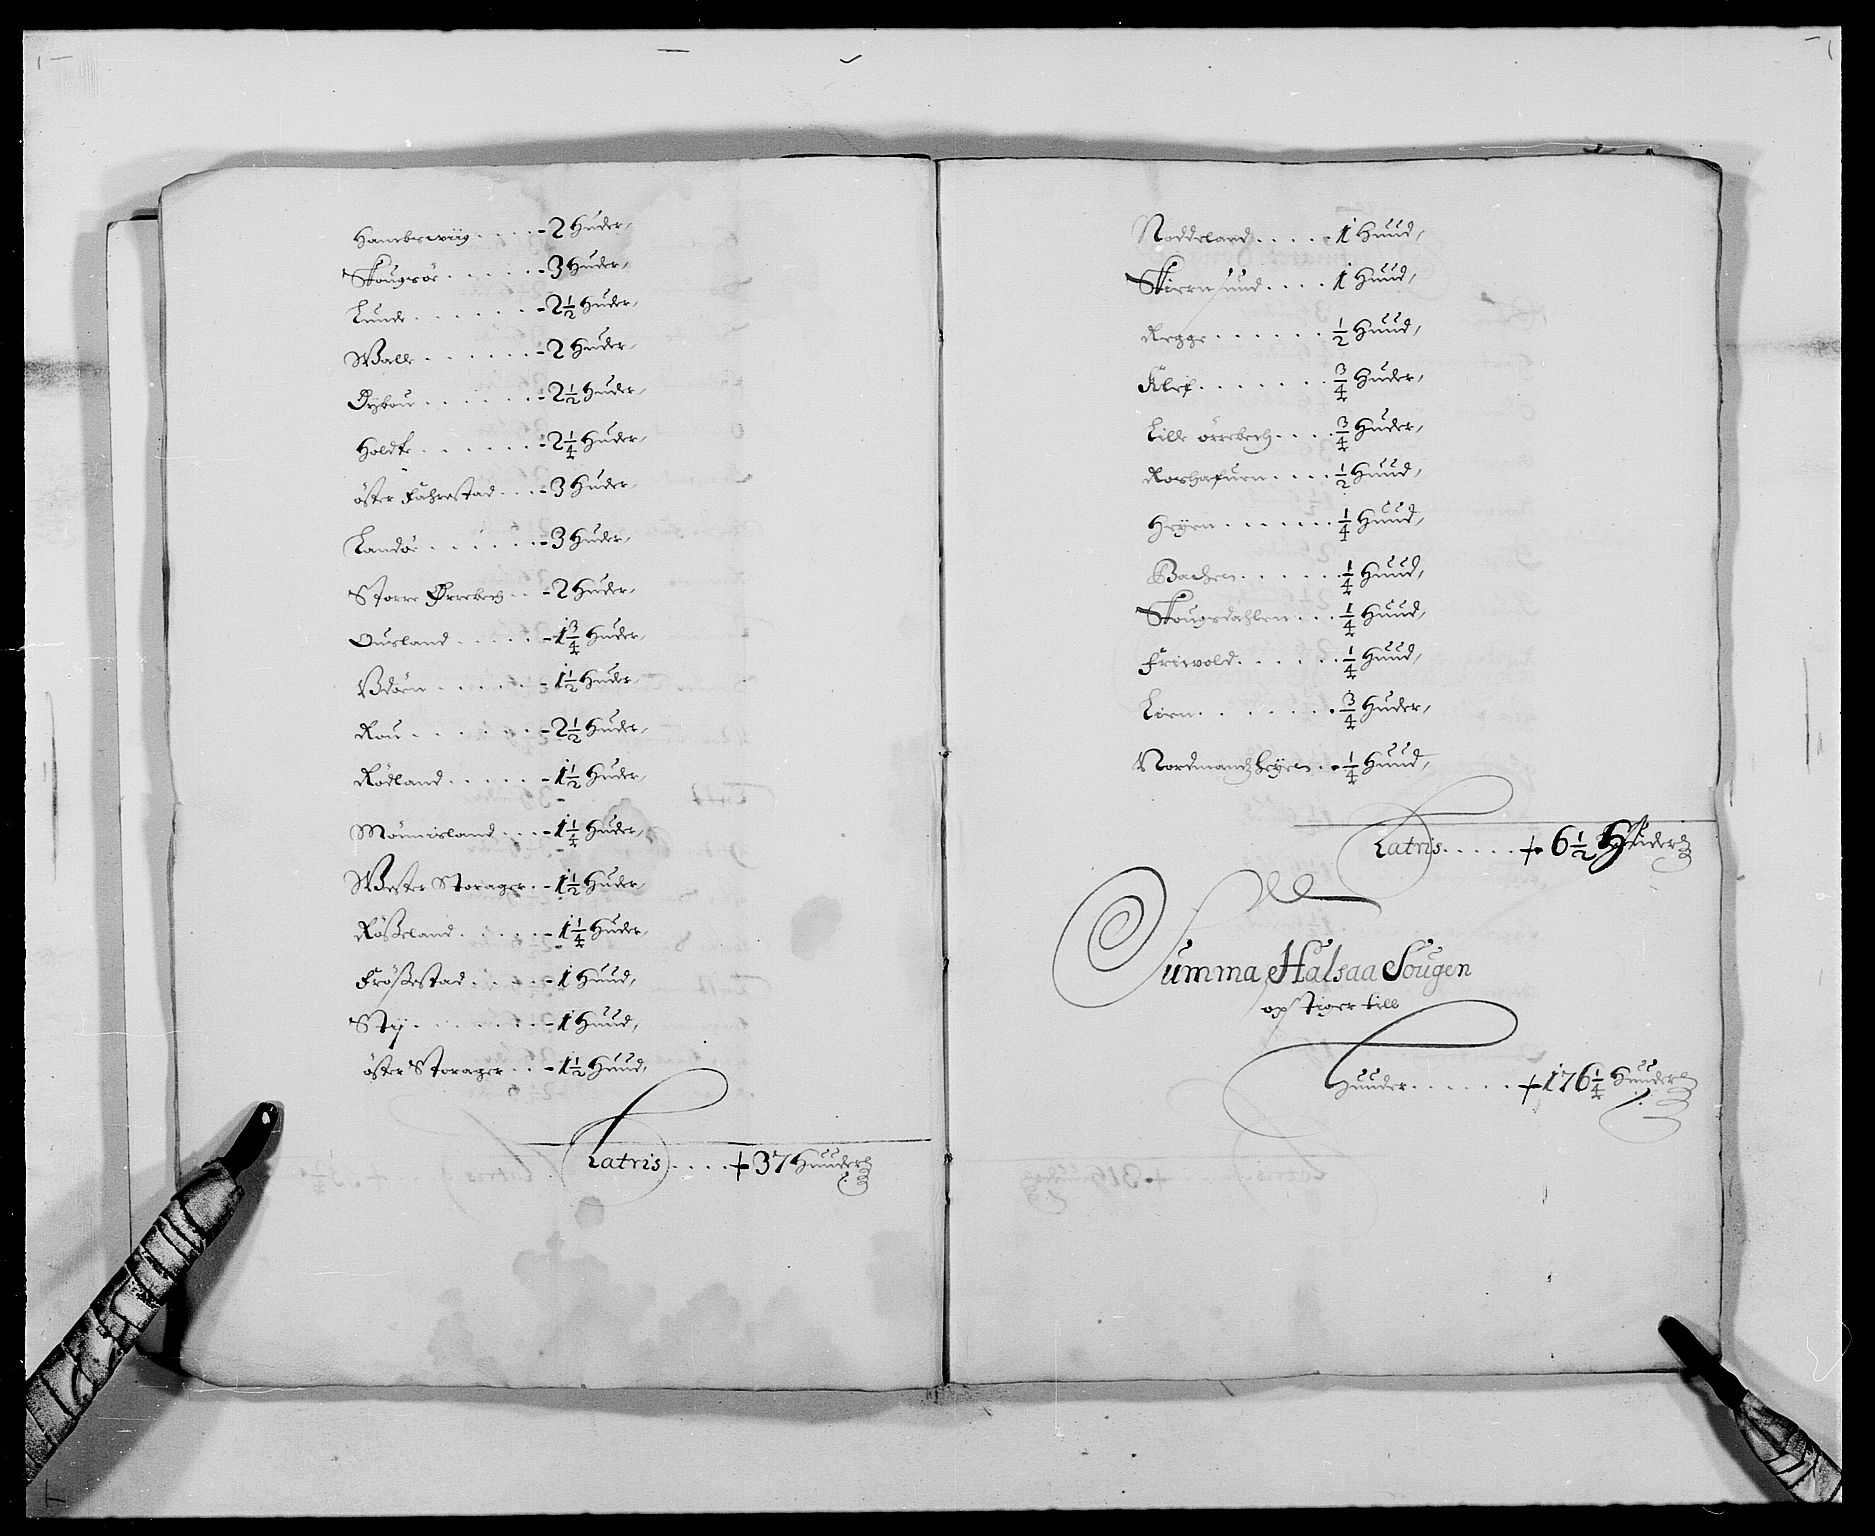 Hambrewiig . . . . - 2 Huder,
Skougsøe . . . . . - 3 Huder,
Lunde . . . . . . - 2 1/2 Huder,
Walle . . . . . . - 2 Huder,
Dybou . . . . . . - 2 1/2 Huder,
Holdte . . . . . . - 2 1/4 Huder,
öster Fahrestad . . . - 3 Huder,
Landøe . . . . . . - 3 Huder,
Storre Ørrebech . . - 2 Huder,
Ousland . . . . . - 1 3/4 Huder,
Vdöen . . . . . - 1 1/2 Huder,
Rou . . . . . . - 2 1/2 Huder,
Rödland . . . . . - 1 1/2 Huder,
Mönnisland . . . - 1 1/4 Huder,
Wester Storager . . - 1 1/2 Huder,
Rößeland . . . . . - 1 1/4 Huder,
Frößestad . . . . . - 1 Huud,
Sty . . . . . . . - 1 Huud,
öster Storager . . - 1 1/2 Huud,
Latris . . . . + 37 Huuder
Noddeland . . . . . 1 Huud,
Skiernsund . . . . 1 Huud,
Regge . . . . . . 1/2 Huud,
Klef . . . . . . . 3/4 Huder,
Lille örrebech . . . . 3/4 Huder,
Roshafuen . . . . 1/2 Huud,
Heyen . . . . . . . 1/4 Huud,
Bachen . . . . . . 1/4 Huud,
Skougsdahlen . . . 1/4 Huud,
Friwold . . . . . . 1/4 Huud,
Lien . . . . . . . 3/4 Huder,
Nordmandsheyen . . 1/4 Huud,
Latris . . . . . + 6 1/2 Huder
Summa Halsaa Sougen
opstiger till
Huuder . . . . . . + 176 1/4 Huuder